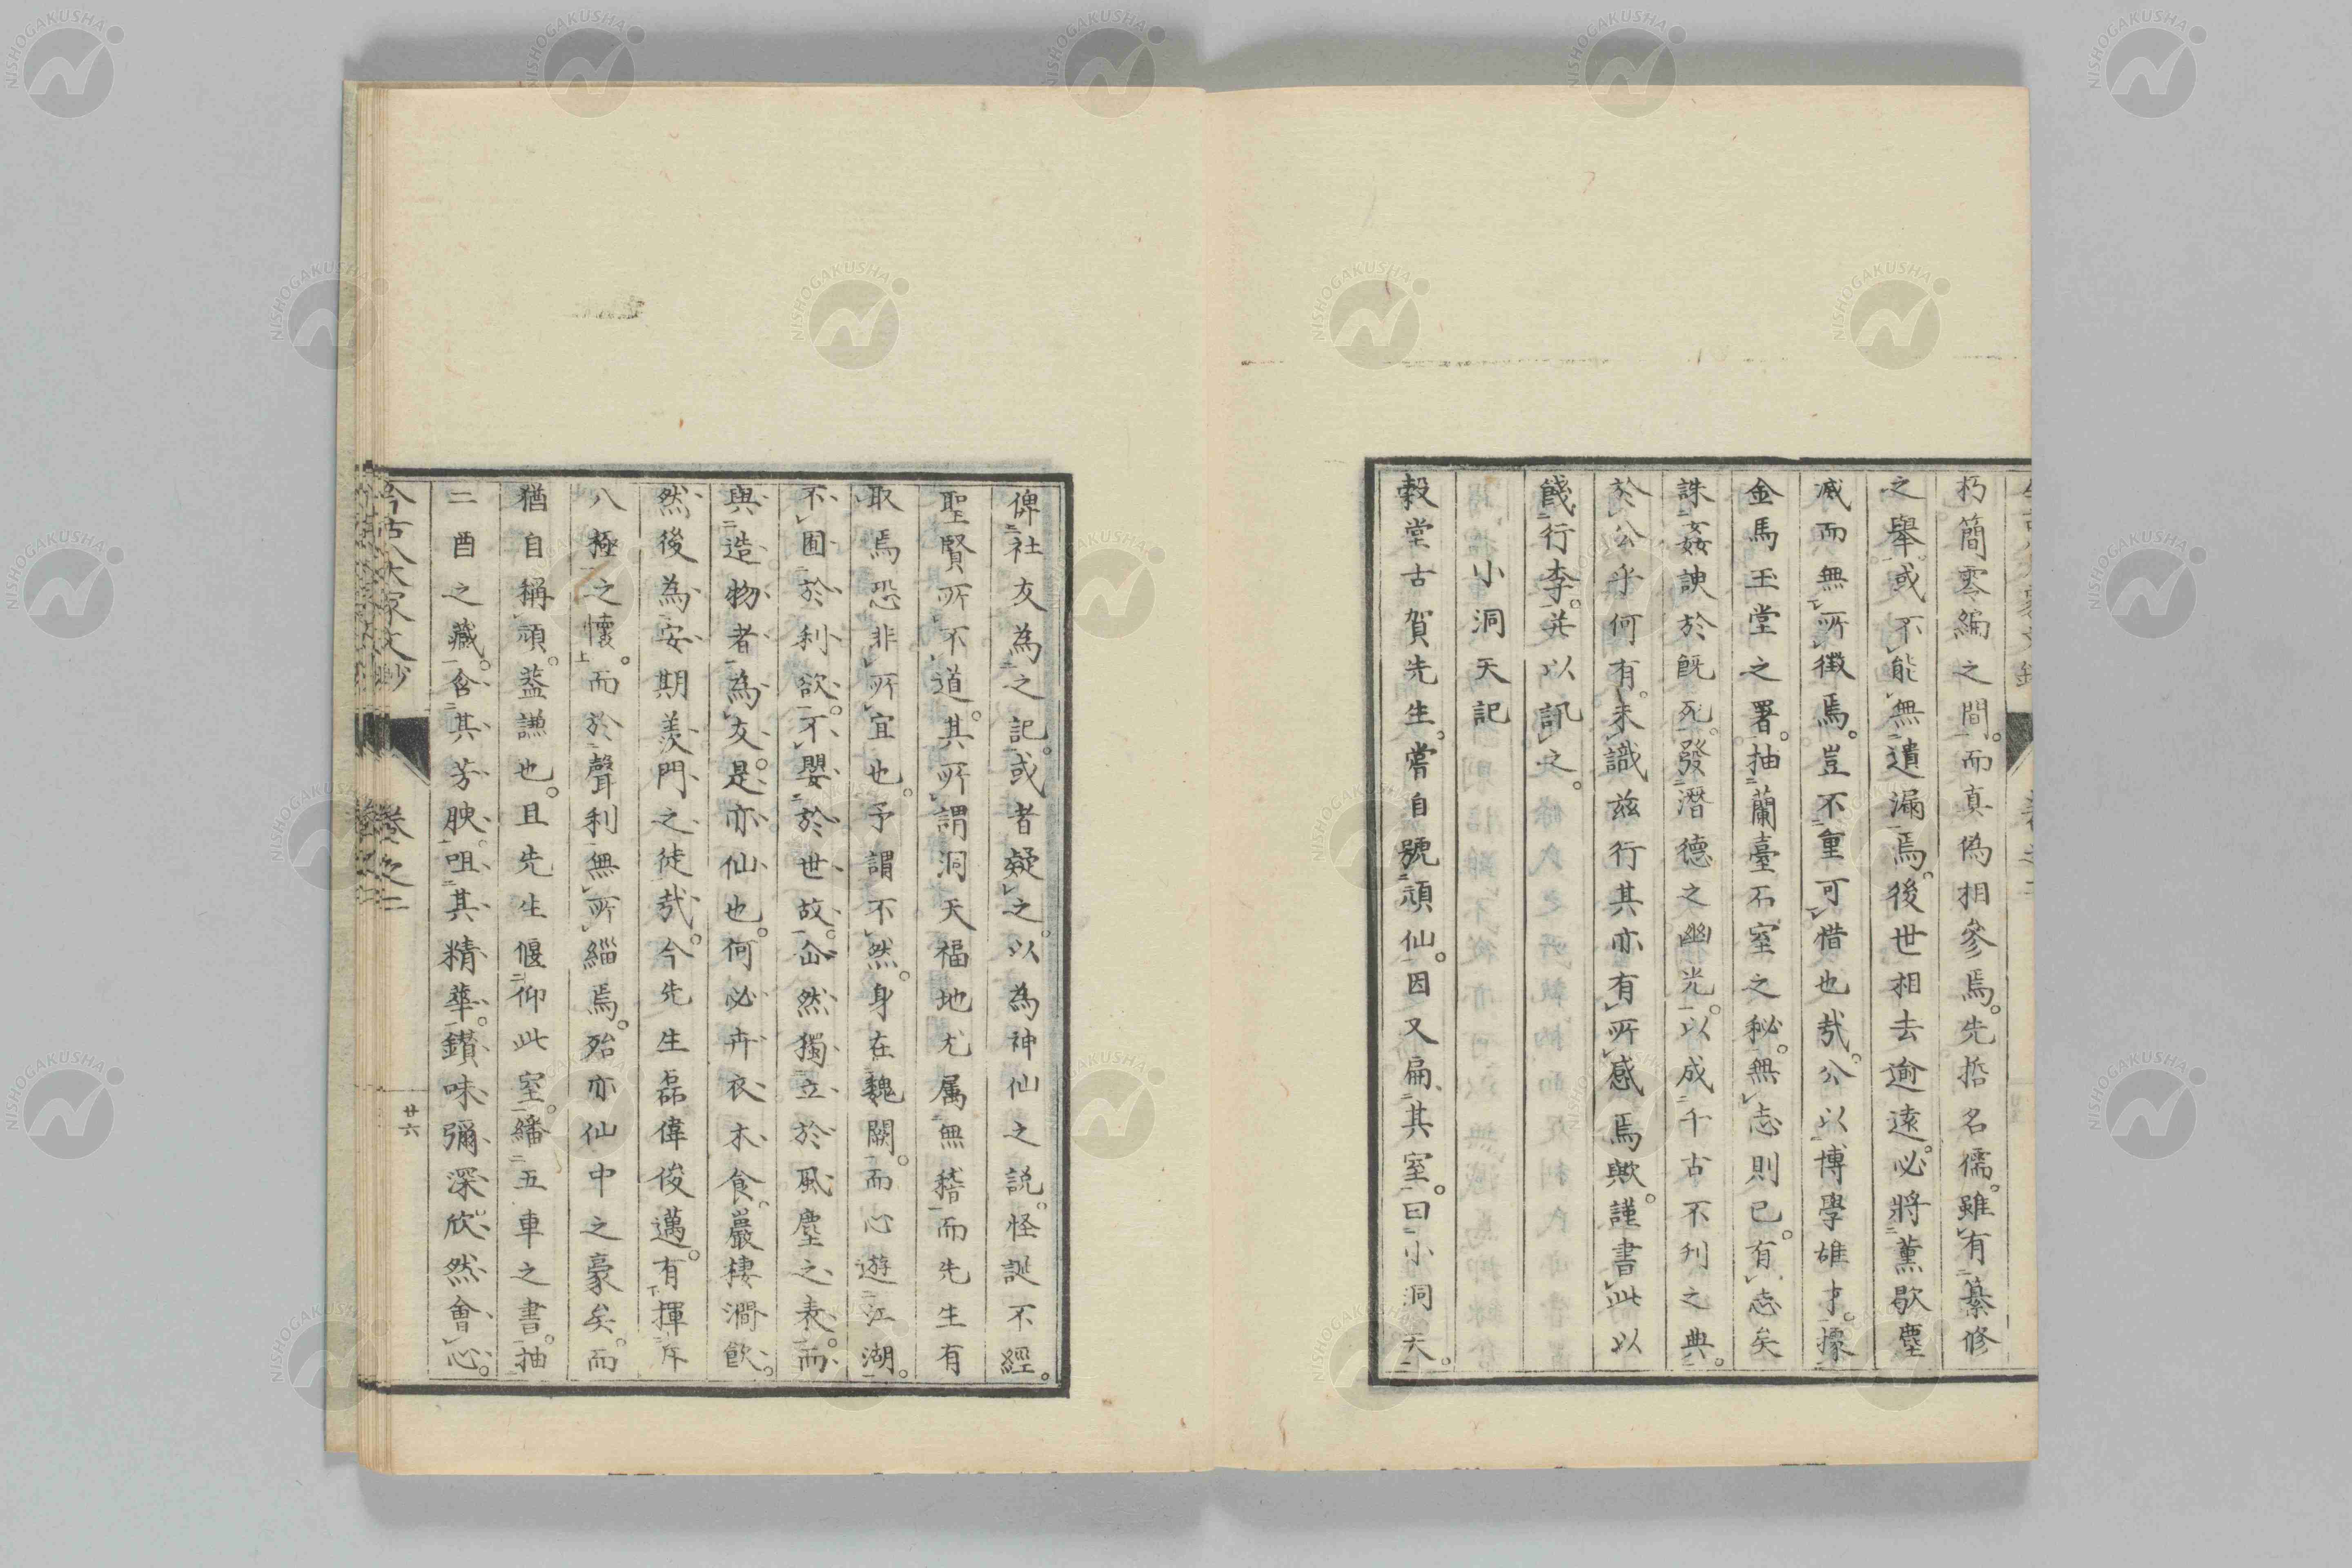 朽簡零編之間。而真偽相參焉。先哲名儒。雖有纂修
之舉。或不能無遺漏焉。後世相去逾遠。必將薫歇塵
滅而無所徵焉。豈不重可惜也哉。公以博學雄才。據
金馬玉堂之署。抽蘭臺石室之秘。無志則已。有志矣
誅姦諛於既死。發潛德之幽光。以成千古不刊之典。
於公乎何有。未識茲行其亦有所感焉歟。謹書此以
餞行李。并以訊之。
小洞天記
穀堂古賀先生。嘗自號頑仙。因又扁其室。曰小洞天。
俾社友為之記。或者疑之。以為神仙之説。怪誕不經。
聖賢所不道。其所謂洞天福地尤属無稽。而先生有
取焉恐非所宜也。予謂不然。身在魏闕。而心遊江湖。
不囿於利欲。不嬰於世故。嵒然獨立於風塵之表。而
與造物者為友。是亦仙也。何必卉衣木食。巖棲澗飲。
然後為安期羨門之徒哉。今先生磊偉俊邁。有揮斥
八極之懷。而於聲利無所緇焉。殆亦仙中之豪矣。而
猶自稱頑。蓋謙也。且先生偃仰此室。繙五車之書。抽
二酉之藏。含其芳腴。咀其精華。鑽味彌深欣然會心。
今古八大家文鈔
卷之二
廿六
NISHOGAKUSHA